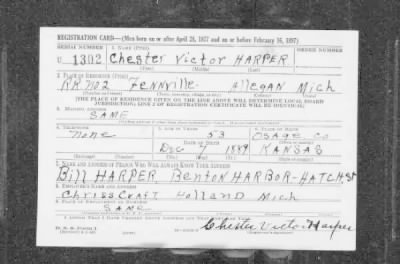 REGISTRATION CARD—(Men born on or after April 28, 1877 and on or before February 16, 1897)
SERIAL NUMBER 1. NAME (Print)
U 1302 Chester Victor HARPER
(First) (Middle) (Last)
2. PLACE OF RESIDENCE (Print)
RR no 2 Fennville Allegan Mich
[THE PLACE OF RESIDENCE GIVEN ON THE LINE ABOVE WILL DETERMINE LOCAL BOARD
JURISDICTION; LINE 2 OF REGISTRATION CERTIFICATE WILL BE IDENTICAL]
3. MAILING ADDRESS
SAME
4. TELEPHONE 5. AGE IN YEARS 6. PLACE OF BIRTH
none 53 Osage Co
DATE OF BIRTH
Dec 7 1889 KANSAS
7. NAME AND ADDRESS OF PERSON WHO WILL ALWAYS KNOW YOUR ADDRESS
Bill HARPER BENTON HARBOR-HATCH St
8. EMPLOYER'S NAME AND ADDRESS
Chriss Craft Holland Mich
9. PLACE OF EMPLOYMENT OR BUSINESS
SAME
I AFFIRM THAT I HAVE VERIFIED ABOVE ANSWERS AND THAT THEY ARE TRUE.
Chester Victor Harper